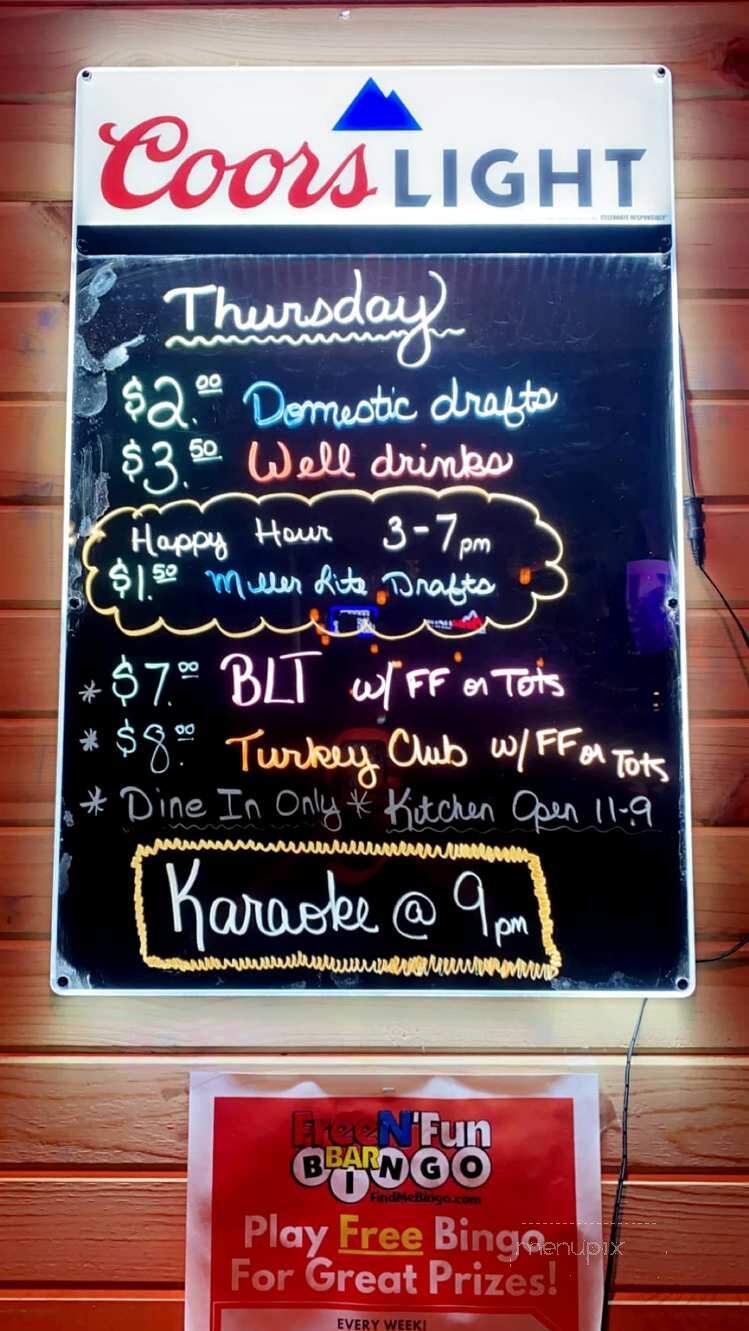 Coors LIGHT
CELEBRATE RESPONSIBLY
Thursday
$2.00 Domestic drafts
$3.50 Well drinks
Happy Hour 3-7pm
$1.50 Miller Lite Drafts
* $7.00 BLT w/ FF or Tots
* $8.00 Turkey Club w/ FF or Tots
* Dine In Only * Kitchen Open 11-9
Karaoke @ 9pm
Free N' Fun
BAR
BINGO
FindMeBingo.com
Play Free Bingo
For Great Prizes!
EVERY WEEK!
menupix